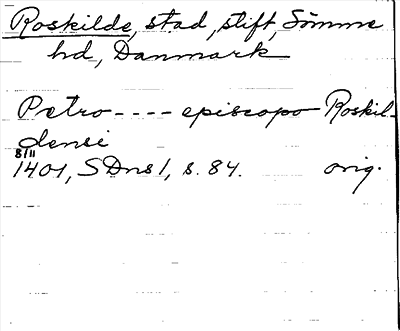 Roskilde, stad, stift, Sömme
hd, Danmark
Petro ---- episcopo Roskil-
densi
8/11
1401, SDns 1, s. 84. orig.